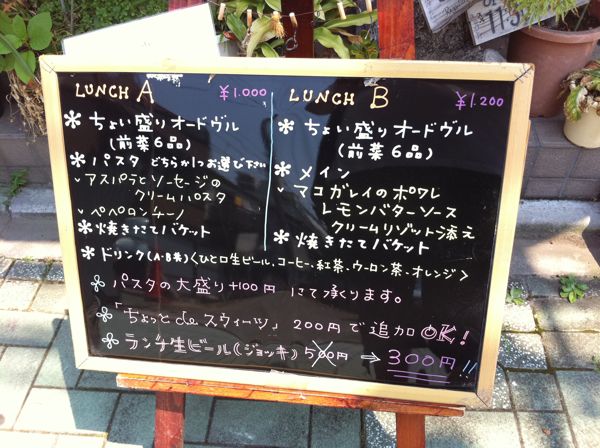 LUNCH A ¥1.000
＊ちょい盛りオードヴル
(前菜6品)
＊パスタ どちらか1つお選び下さい
✓アスパラとソーセージの
クリームパスタ
✓ペペロンチーノ
＊焼きたてバケット
LUNCH B ¥1.200
＊ちょい盛りオードヴル
(前菜6品)
＊メイン
✓マコガレイのポワレ
レモンバターソース
クリームリゾット添え
＊焼きたてバケット
＊ドリンク(A・B共)<ひと口生ビール、コーヒー、紅茶、ウーロン茶、オレンジ>
＊パスタの大盛り+100円 にて承ります。
＊「ちょっとdeスウィーツ」200円で追加OK!
＊ランチ生ビール(ジョッキ) 500円 → 300円!!